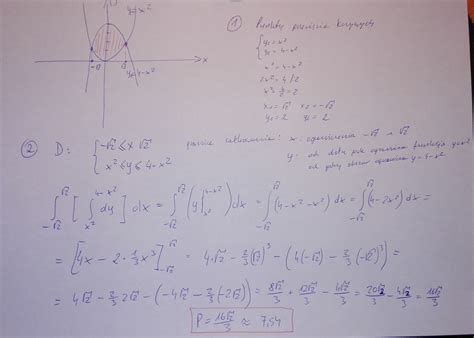 y=x²
-√2 √2 x
y=4-x²
① Punkty przecięcia krzywych
{ y=x²
y=4-x²
x²=4-x²
2x²=4 /2
x²=4/2=2
x₁=√2 x₂=-√2
y₁=2 y₂=2
② D: { -√2 ≤ x √2
x² ≤ y ≤ 4-x²
granice całkowania: x: ograniczenia -√2 i √2
y: od dołu pole ogranicza funkcja y=x²
od góry obszar ogranicza y=4-x²
∫_{-√2}^{√2} [ ∫_{x²}^{4-x²} dy ] dx = ∫_{-√2}^{√2} (y|_{x²}^{4-x²}) dx = ∫_{-√2}^{√2} (4-x²-x²) dx = ∫_{-√2}^{√2} (4-2x²) dx =
= [4x - 2·1/3 x³]_{-√2}^{√2} = 4·√2 - 2/3(√2)³ - (4(-√2) - 2/3(-√2)³) =
= 4√2 - 2/3·2√2 - (-4√2 - 2/3(-2√2)) = 8√2/3 + 12√2/3 - 4√2/3 = 20√2/3 - 4√2/3 = 16√2/3
P = 16√2/3 ≈ 7,54